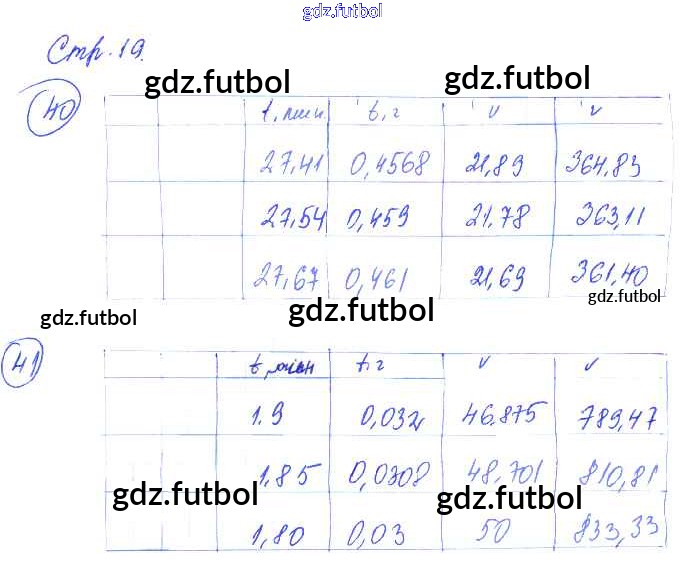 gdz.futbol
Стр. 19.
gdz.futbol gdz.futbol
40
t, мин t, г v v
27,41 0,4568 21,89 364,83
27,54 0,459 21,78 363,11
27,67 0,461 21,69 361,40
gdz.futbol gdz.futbol gdz.futbol
41
t, мин t, г v v
1.9 0,032 46.875 789,47
1,85 0,0308 48,701 810,81
gdz.futbol gdz.futbol
1,80 0,03 50 833,33